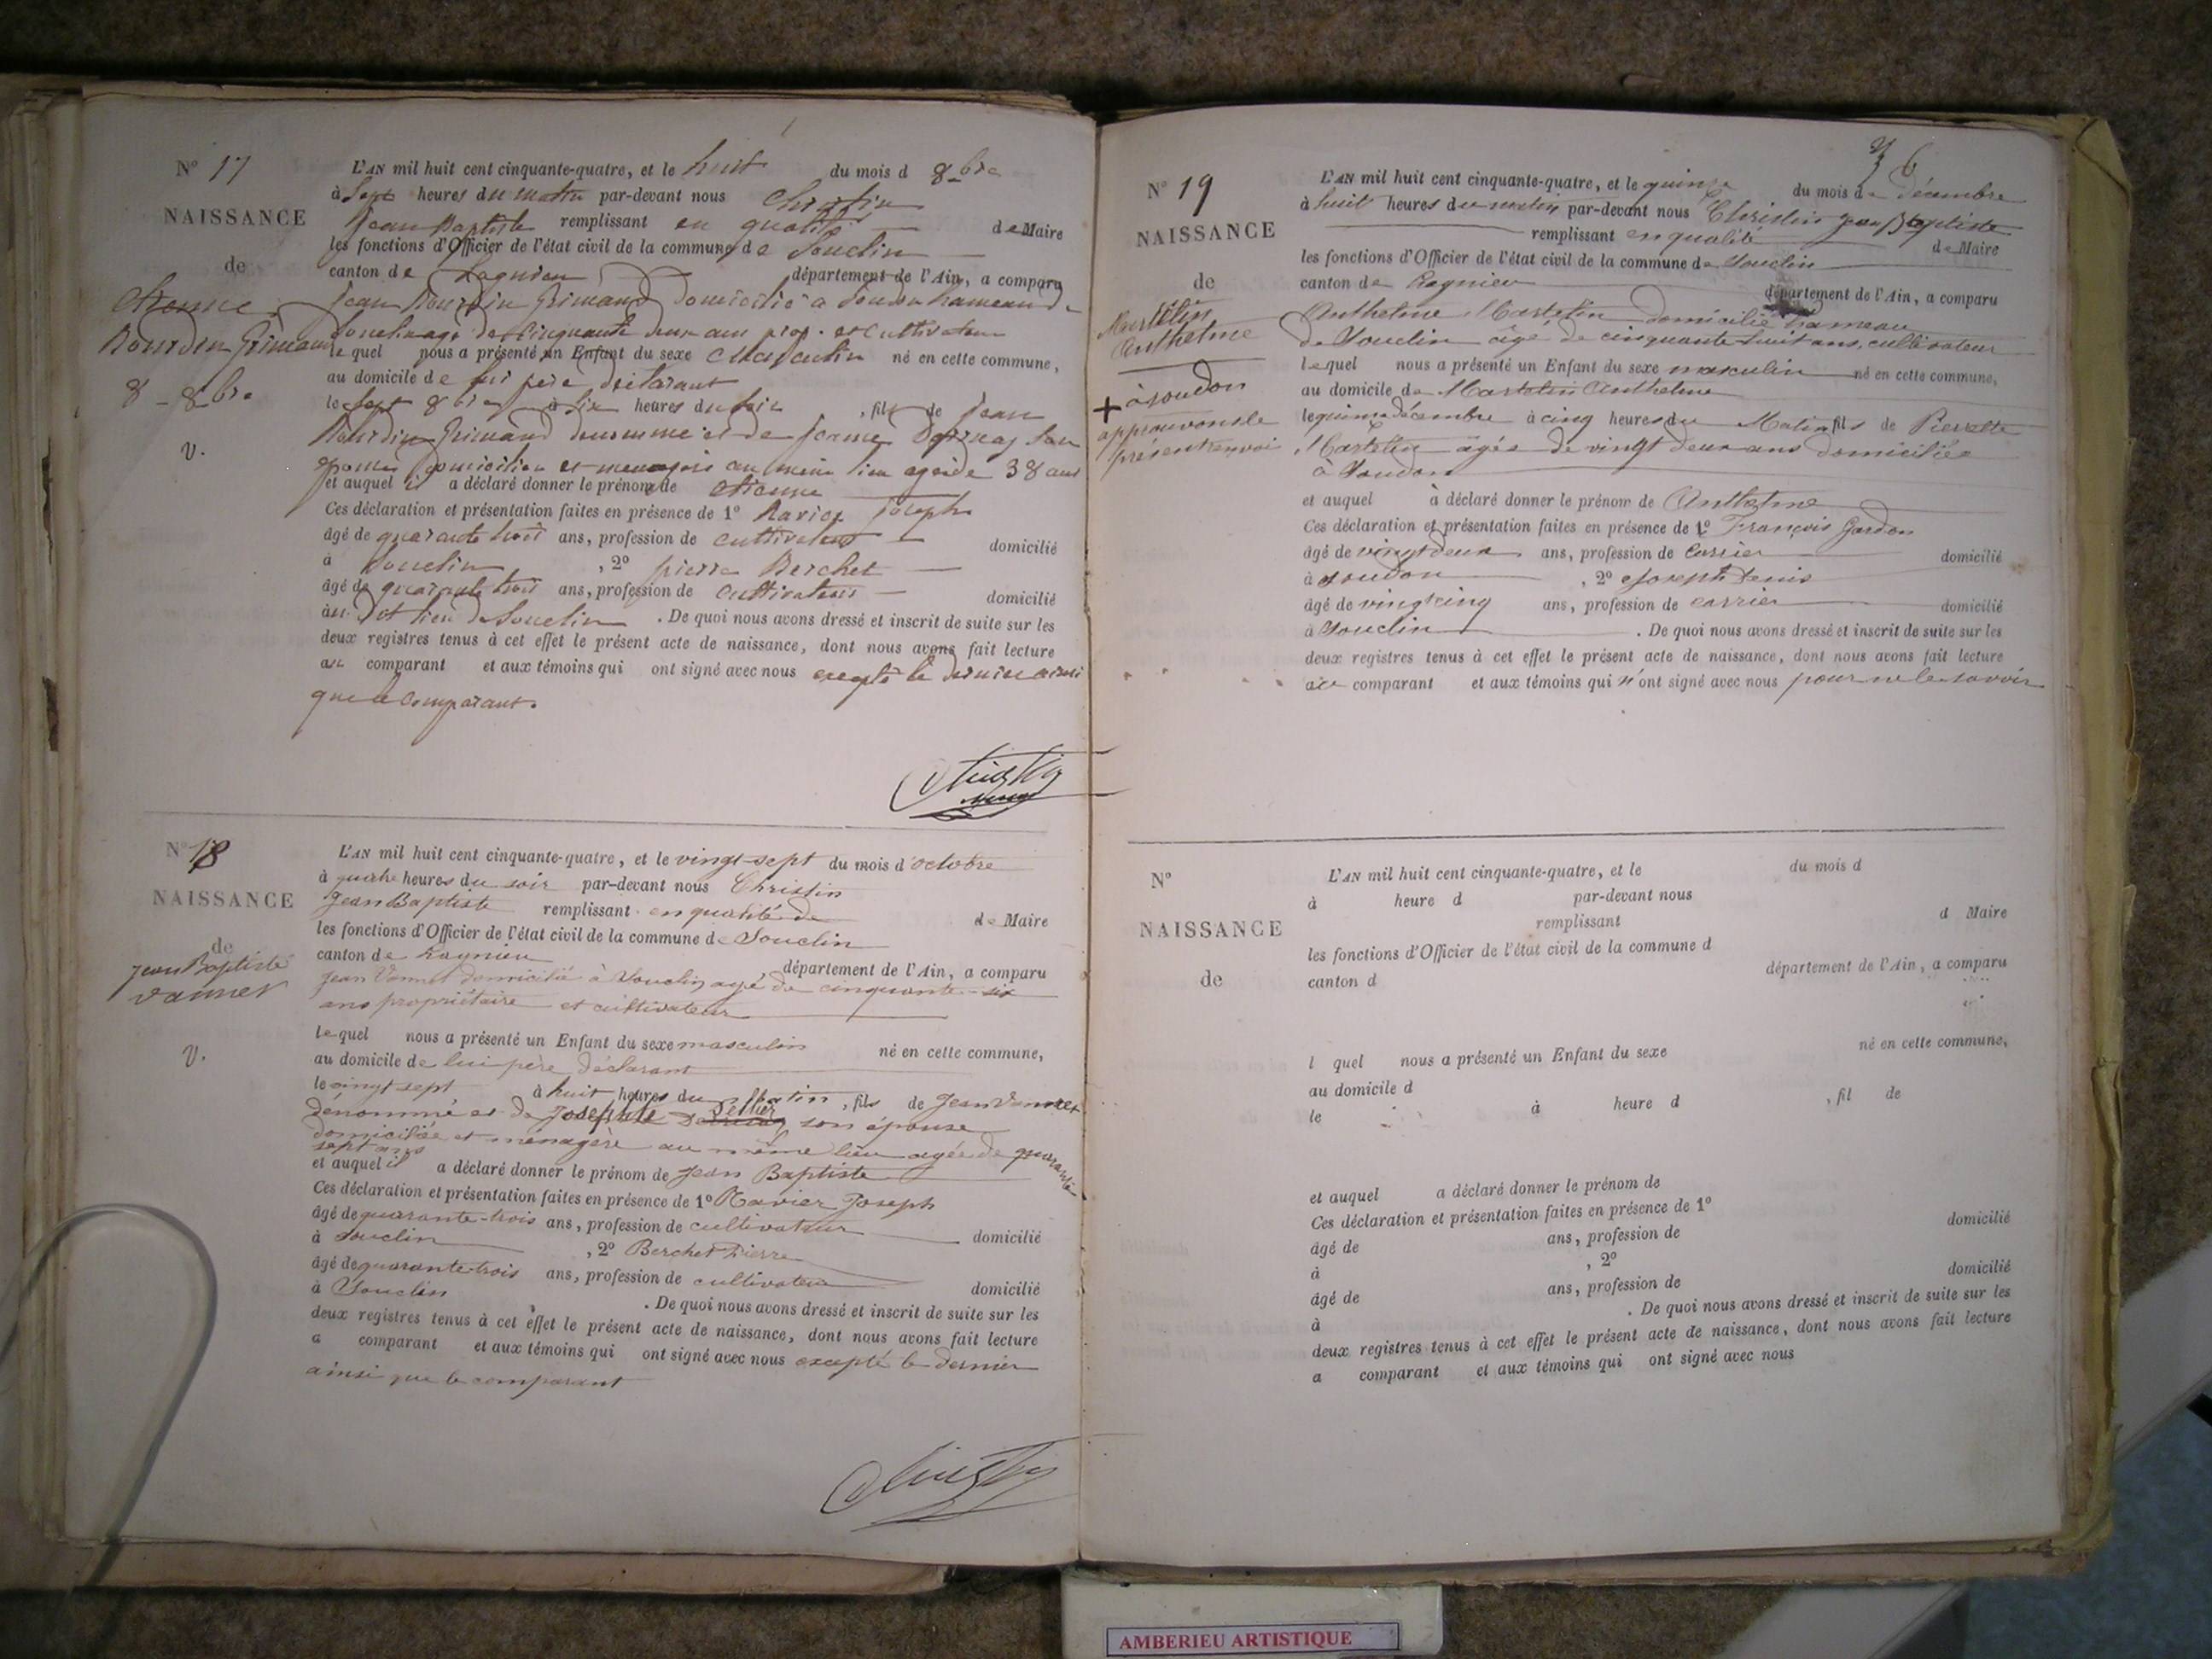 N° 17
NAISSANCE
de
Etienne
Bourdin Grimaud
8 - 8bre
v.
L'AN mil huit cent cinquante-quatre, et le huit du mois d 8bre
à Sept heures du matin par-devant nous Christin
Jean Baptiste remplissant en qualité de Maire
les fonctions d'Officier de l'état civil de la commune de Souclin
canton de Lagnieu département de l'Ain, a comparu
Jean Bourdin Grimaud domicilié a Soudon hameau de
Souclin agé de cinquante deux ans prop. et Cultivateur
lequel nous a présenté un Enfant du sexe Masculin né en cette commune,
au domicile de lui père déclarant
le Sept 8bre à Six heures du soir , fils de Jean
Bourdin Grimaud dénommé et de Jeanne son
épouse domiciliée et menagère au même lieu agée de 38 ans
et auquel il a déclaré donner le prénom de Etienne
Ces déclaration et présentation faites en présence de 1° Ravier Joseph
âgé de quarante trois ans, profession de cultivateur domicilié
à Souclin , 2° pierre Berchet
âgé de quarante trois ans, profession de cultivateur domicilié
au dit lieu de Souclin . De quoi nous avons dressé et inscrit de suite sur les
deux registres tenus à cet effet le présent acte de naissance, dont nous avons fait lecture
au comparant et aux témoins qui ont signé avec nous excepté le dernier ainsi
que le comparant.
Christin
N° 18
NAISSANCE
de
Jean Baptiste
Vannet
v.
L'AN mil huit cent cinquante-quatre, et le vingt-sept du mois d'octobre
à quatre heures du soir par-devant nous Christin
Jean Baptiste remplissant en qualité de de Maire
les fonctions d'Officier de l'état civil de la commune de Souclin
canton de Lagnieu département de l'Ain, a comparu
Jean Vannet domicilié à Souclin agé de cinquante-six
ans propriétaire et cultivateur
lequel nous a présenté un Enfant du sexe masculin né en cette commune,
au domicile de lui père déclarant
le vingt sept à huit heures du matin , fils de Jean Vannet
dénommé et de Josephte Sellier son épouse
domiciliée et ménagère au même lieu agée de quarante
sept ans
et auquel il a déclaré donner le prénom de Jean Baptiste
Ces déclaration et présentation faites en présence de 1° Ravier Joseph
âgé de quarante-trois ans, profession de cultivateur domicilié
à Souclin , 2° Berchet Pierre
âgé de quarante-trois ans, profession de cultivateur domicilié
à Souclin . De quoi nous avons dressé et inscrit de suite sur les
deux registres tenus à cet effet le présent acte de naissance, dont nous avons fait lecture
a comparant et aux témoins qui ont signé avec nous excepté le dernier
ainsi que le comparant
Christin
6
N° 19
NAISSANCE
de
Martelin
Anthelme
+ à Soudon
approuvons le
présent renvoi
L'AN mil huit cent cinquante-quatre, et le quinze du mois de décembre
à huit heures du matin par-devant nous Christin Jean Baptiste
remplissant en qualité de Maire
les fonctions d'Officier de l'état civil de la commune de Souclin
canton de Lagnieu département de l'Ain, a comparu
Anthelme Martelin domicilié hameau
de Souclin âgé de cinquante huit ans, cultivateur
lequel nous a présenté un Enfant du sexe masculin né en cette commune,
au domicile de Martelin Anthelme
le quinze décembre à cinq heures du Matin , fils de Pierrette
Martelin âgée de vingt deux ans domiciliée
à Soudon
et auquel à déclaré donner le prénom de Anthelme
Ces déclaration et présentation faites en présence de 1° François Gardon
âgé de vingt deux ans, profession de Carrier domicilié
à Soudon , 2° Joseph Denis
âgé de vingt cinq ans, profession de carrier domicilié
à Souclin . De quoi nous avons dressé et inscrit de suite sur les
deux registres tenus à cet effet le présent acte de naissance, dont nous avons fait lecture
au comparant et aux témoins qui n'ont signé avec nous pour ne le savoir
N°
NAISSANCE
de
L'AN mil huit cent cinquante-quatre, et le du mois d
à heure d par-devant nous
remplissant d Maire
les fonctions d'Officier de l'état civil de la commune d
canton d département de l'Ain, a comparu
l quel nous a présenté un Enfant du sexe né en cette commune,
au domicile d
le à heure d , fil de
et auquel a déclaré donner le prénom de
Ces déclaration et présentation faites en présence de 1°
âgé de ans, profession de domicilié
à , 2°
âgé de ans, profession de domicilié
à . De quoi nous avons dressé et inscrit de suite sur les
deux registres tenus à cet effet le présent acte de naissance, dont nous avons fait lecture
a comparant et aux témoins qui ont signé avec nous
AMBERIEU ARTISTIQUE